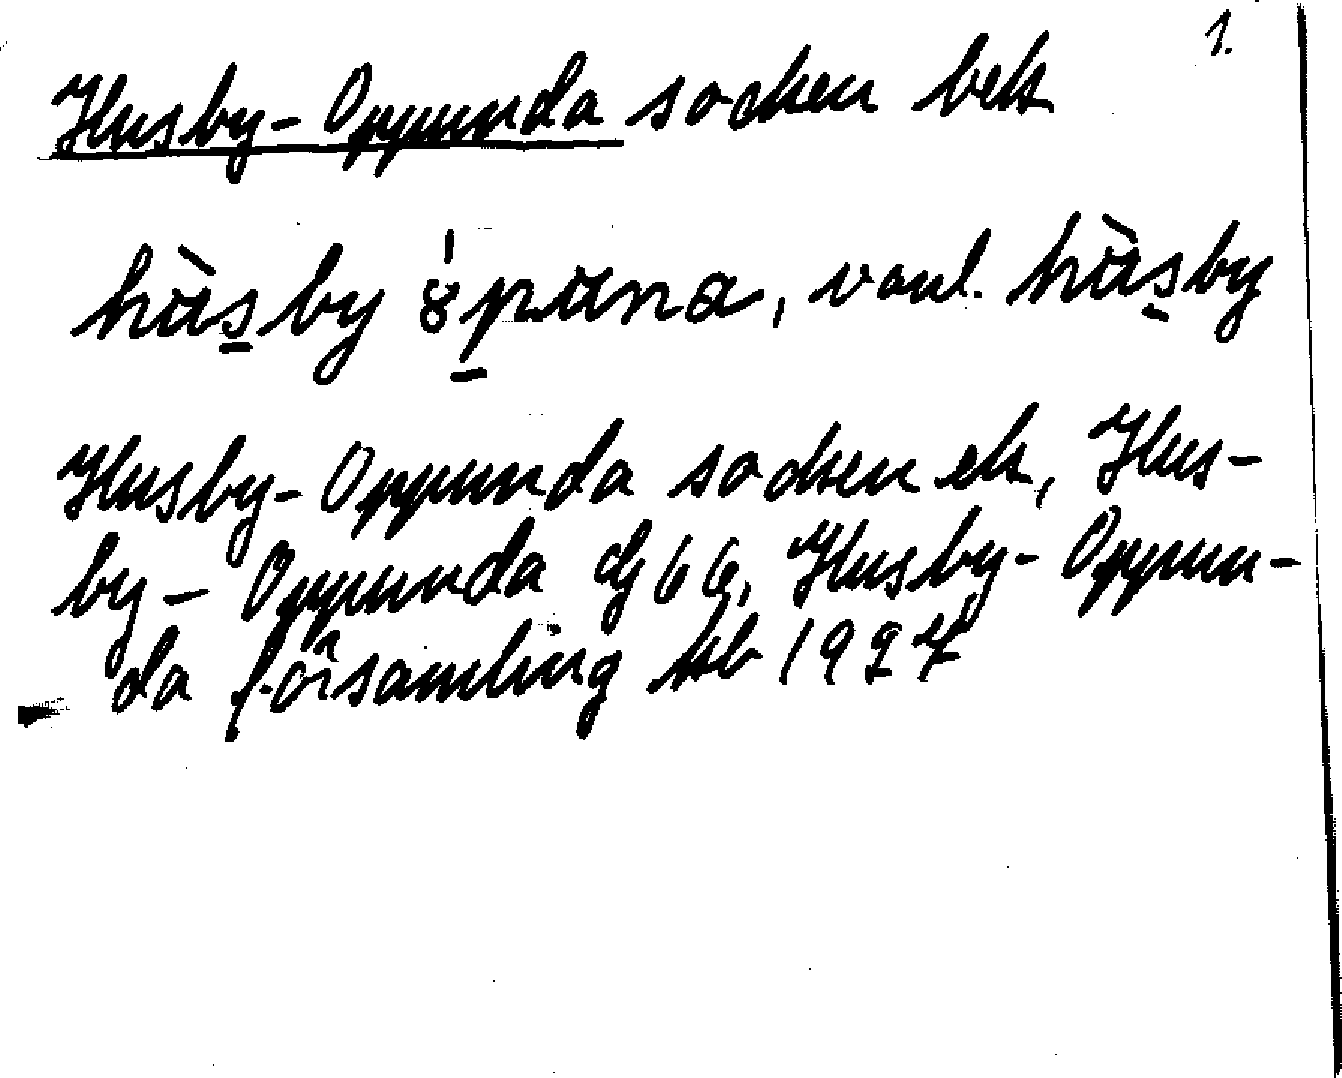 1.
Husby-Oppunda socken bek
hùsby 8́puna, vanl. hùsby
Husby-Oppunda socken ek, Hus-
by-Oppunda Gj 66, Husby-Oppun-
da församling kb 1927